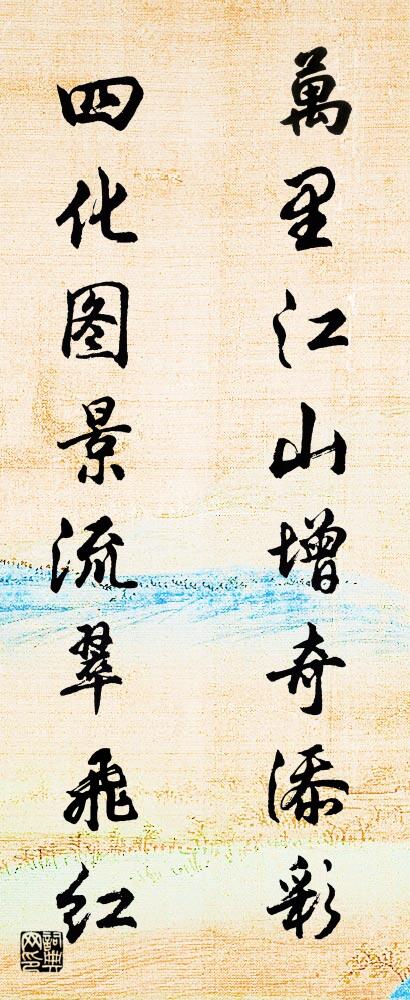 萬里江山增奇添彩
四化图景流翠飞红
詞典网印